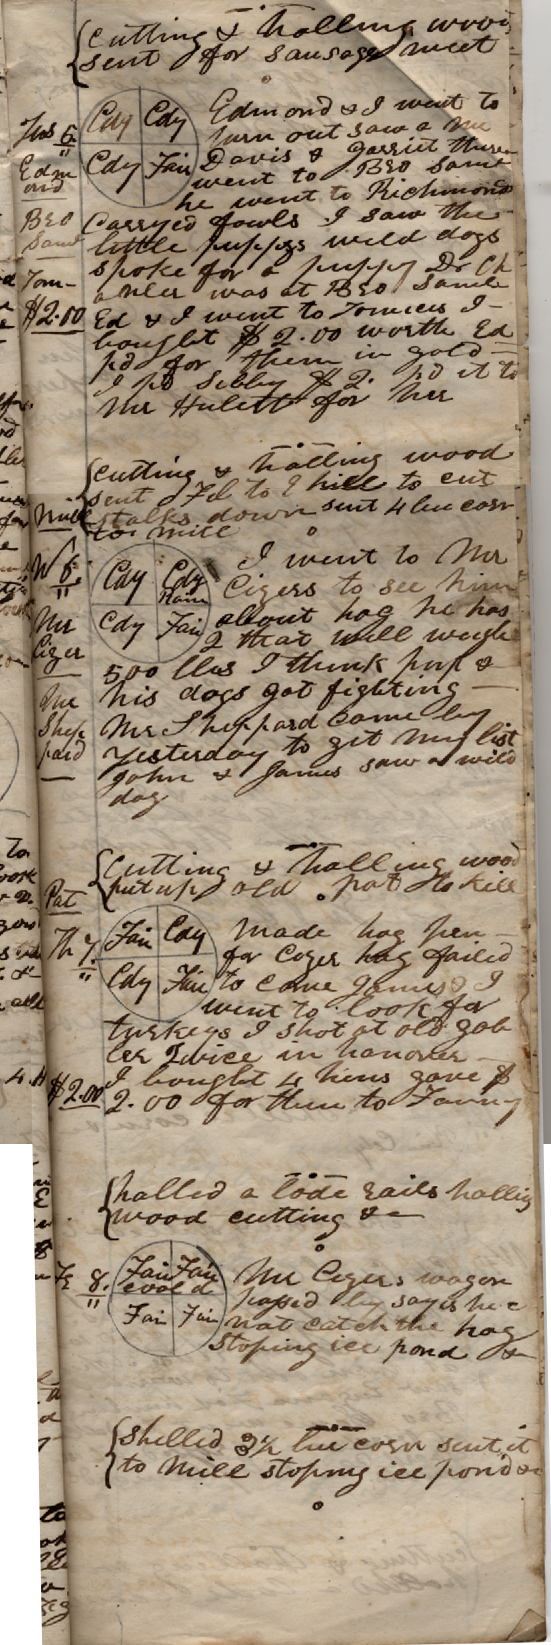 {cutting & halling wood
sent for sausage meet
Tus 5 Cdy Cdy Edmond & I went to
turn out saw a Mr
Edm Cdy Fair Davis & Garriet
ond went to Bro Saml
he went to Richmond
Bro Carryed fowls I saw the
Saml little puppys wild dogs
Tom- spoke for a puppy Dr Ch
arles was at Bro Samls
$2.00 Ed & I went to I
bought $2.00 worth Ed
pd for them in gold
I pd Sibby $2. pd it to
Mr Hulett for her
{cutting & halling wood
sent to hill to cut
Mill stalks down sent 4 bu corn
to mill
W 6 Cdy Cdy I went to Mr
Rain Cigers to see him
Mr Cdy Fair about hog he has
Ciger 2 that will weigh
500 lbs I think pup &
Mr his dogs got fighting
Shep Mr Sheppard came by
pard yesterday to git my list
John & James saw a wild
dog
{Cutting & halling wood
Pat put up old pat to kill
Th 7 Fair Cdy Made hog pen
for Ceger hog failed
Cdy Fair to come James & I
went to look for
turkeys I shot at old gob
ler twice in hanover
I bought 4 hens gave $
$2.00 2.00 for them to Fanny
{halled a lode rails halling
wood cutting &
Fr 8 Fair Fair Mr Cegers wagon
coold passed by says he c
Fair Fair not catch the hog
stoping ice pond &
{shelled 3½ bu corn sent it
to mill stoping ice pond &